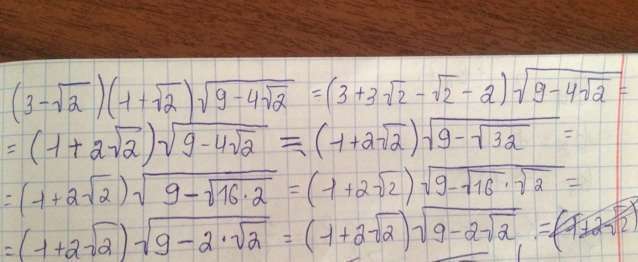 (3-√2)(1+√2)√(9-4√2) =(3+3√2-√2-2)√(9-4√2) =
=(1+2√2)√(9-4√2) = (1+2√2)√(9-√32) =
=(1+2√2)√(9-√(16·2)) = (1+2√2)√(9-√16·√2) =
=(1+2√2)√(9-2·√2) = (1+2√2)√(9-2√2) =(1+2√2)